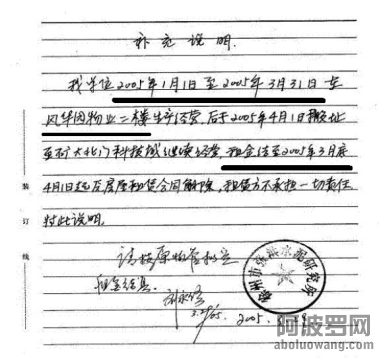 补充说明
我单位2005年1月1日至2005年3月31日在
风华园物业二楼生产经营,后于2005年4月1日搬址
至 大北门科技城继续经营,租金结至2005年3月底
4月1日起在原房租赁合同解除,租赁方不承担一切责任
对此说明.
请按原物 
租金结算.
2005.
装
订
线
州市 水泥研究所
阿波罗网
aboluowang.com